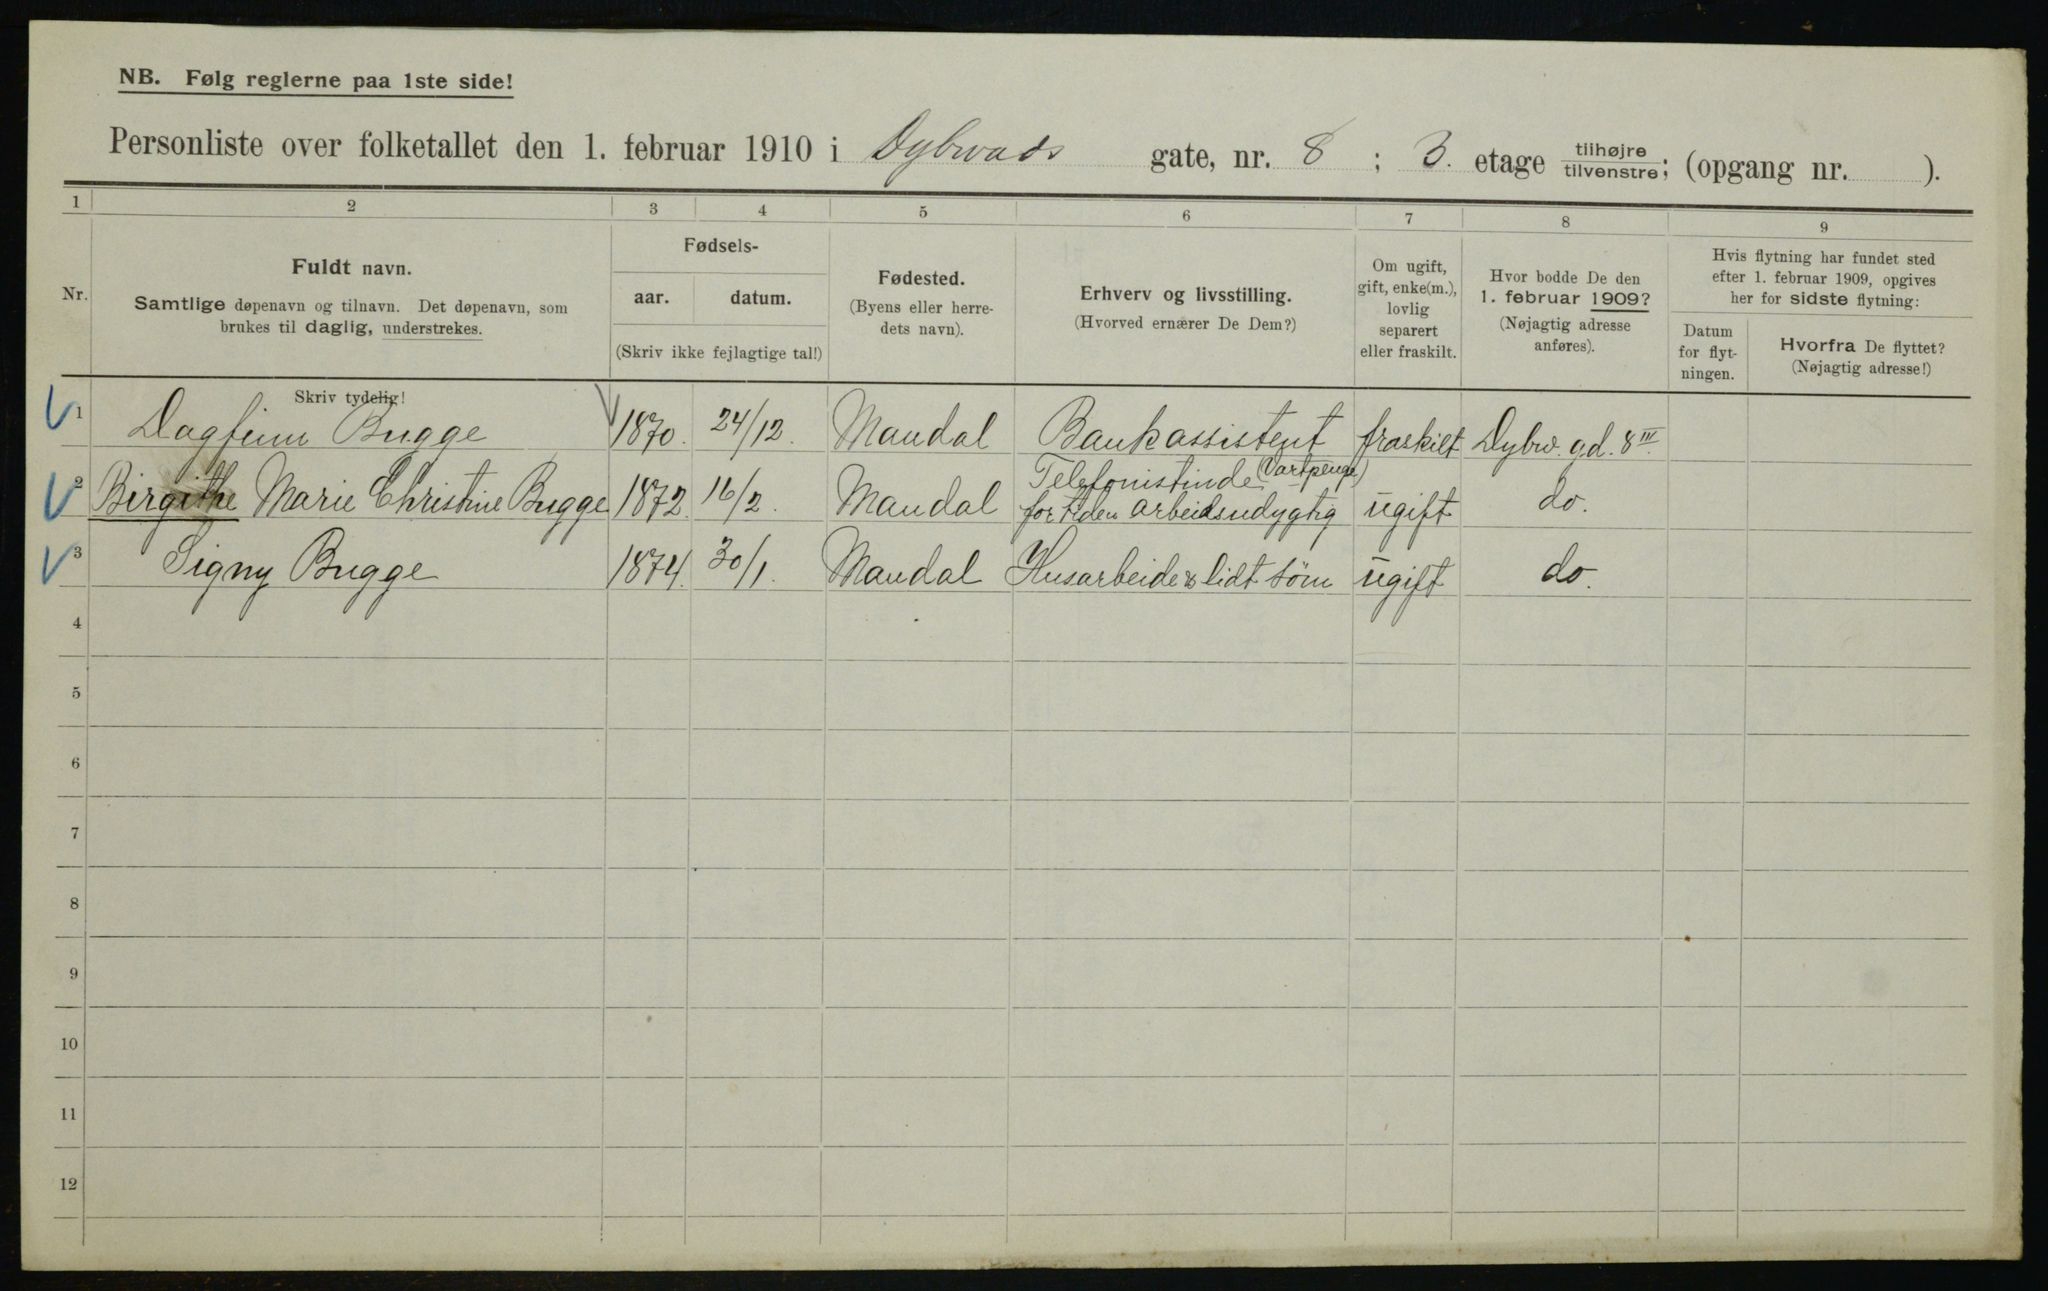 NB. Følg reglerne paa 1ste side!
Personliste over folketallet den 1. februar 1910 i Dybwads gate, nr. 8 ; 3. etage tilhøjre/tilvenstre; (opgang nr. ).
1 2 3 4 5 6 7 8 9
Nr.
Fuldt navn.
Samtlige døpenavn og tilnavn. Det døpenavn, som
brukes til daglig, understrekes.
Fødsels-
aar. datum.
(Skriv ikke fejlagtige tal!)
Fødested.
(Byens eller herre-
dets navn).
Erhverv og livsstilling.
(Hvorved ernærer De Dem?)
Om ugift,
gift, enke(m.),
lovlig
separert
eller fraskilt.
Hvor bodde De den
1. februar 1909?
(Nøjagtig adresse
anføres).
Hvis flytning har fundet sted
efter 1. februar 1909, opgives
her for sidste flytning:
Datum
for flyt-
ningen.
Hvorfra De flyttet?
(Nøjagtig adresse!)
Skriv tydelig!
1 Dagfinn Bugge 1870. 24/12. Mandal Bankassistent fraskilt Dybw. gd. 8 III.
Telefonistinde (Vartpenge)
2 Birgithe Marie Christine Bugge 1872. 16/2. Mandal for tiden arbeidsudygtig ugift do.
3 Signy Bugge 1874. 30/1. Mandal Husarbeide & lidt søm ugift do.
4
5
6
7
8
9
10
11
12